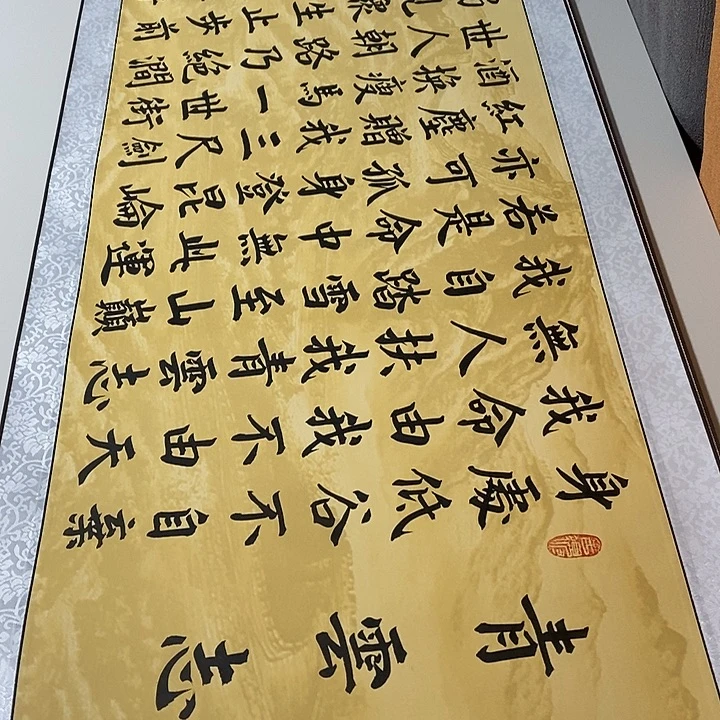 青雲志
身處低谷不自棄
我命由我不由天
無人扶我青雲志
我自踏雪至山巔
若是命中無此運
亦可孤身登昆崙
紅塵贈我三尺劍
酒換瘦馬一世街
世人朝路乃絕澗
眾生止步前